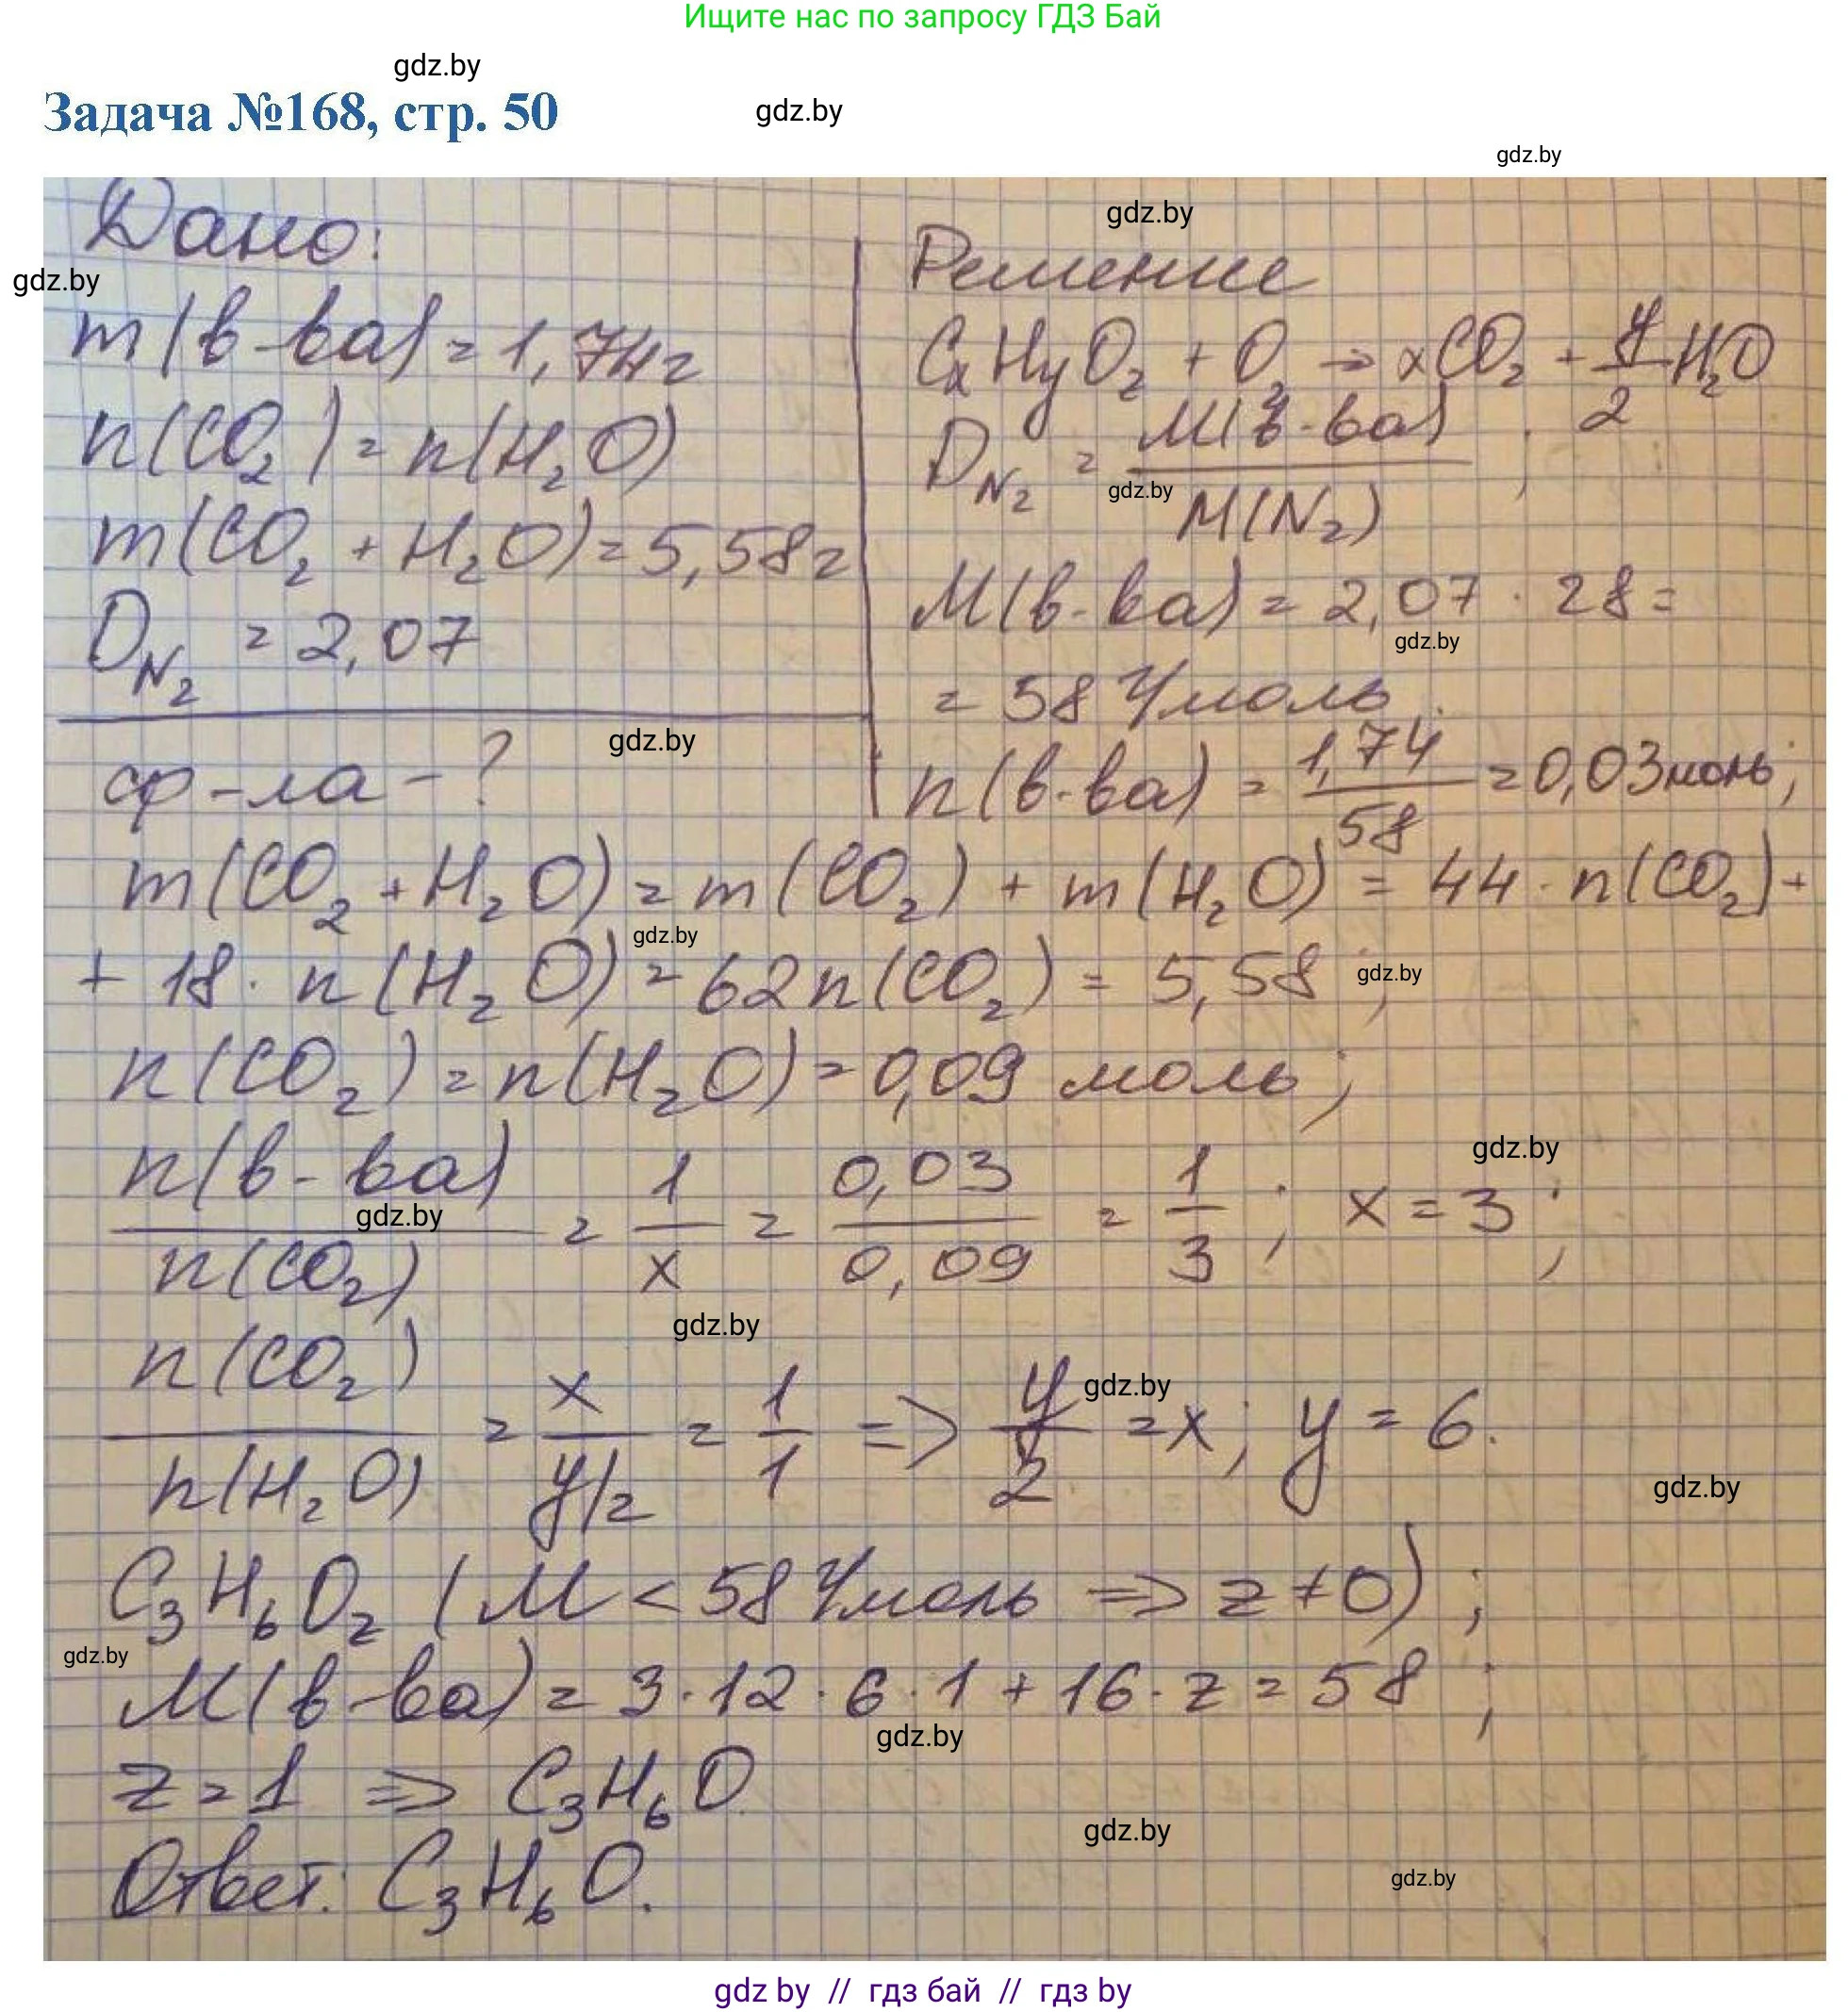 Ищите нас по запросу ГДЗ Бай
gdz.by
Задача №168, стр. 50
gdz.by
gdz.by
Дано:
gdz.by
m(в-ва) = 1,74 г
n(CO₂) = n(H₂O)
m(CO₂ + H₂O) = 5,58 г
D_N₂ = 2,07
ф-ла - ?
gdz.by
gdz.by
Решение
CₓHᵧO_z + O₂ → xCO₂ + y/2 H₂O
D_N₂ = M(в-ва) / M(N₂) ;
gdz.by
M(в-ва) = 2,07 · 28 =
gdz.by
= 58 г/моль.
n(в-ва) = 1,74/58 = 0,03 моль;
m(CO₂ + H₂O) = m(CO₂) + m(H₂O) = 44 · n(CO₂) +
gdz.by
+ 18 · n(H₂O) = 62n(CO₂) = 5,58 ;
gdz.by
n(CO₂) = n(H₂O) = 0,09 моль ;
gdz.by
n(в-ва) / n(CO₂) = 1/x = 0,03/0,09 = 1/3 ; x = 3 ;
gdz.by
gdz.by
gdz.by
n(CO₂) / n(H₂O) = x / y/2 = 1/1 => y/2 = x; y = 6.
gdz.by
C₃H₆O_z (M < 58 г/моль => z ≠ 0) ;
gdz.by
M(в-ва) = 3 · 12 · 6 · 1 + 16 · z = 58 ;
gdz.by
z = 1 => C₃H₆O
gdz.by
Ответ: C₃H₆O.
gdz.by
gdz by // гдз бай // гдз by